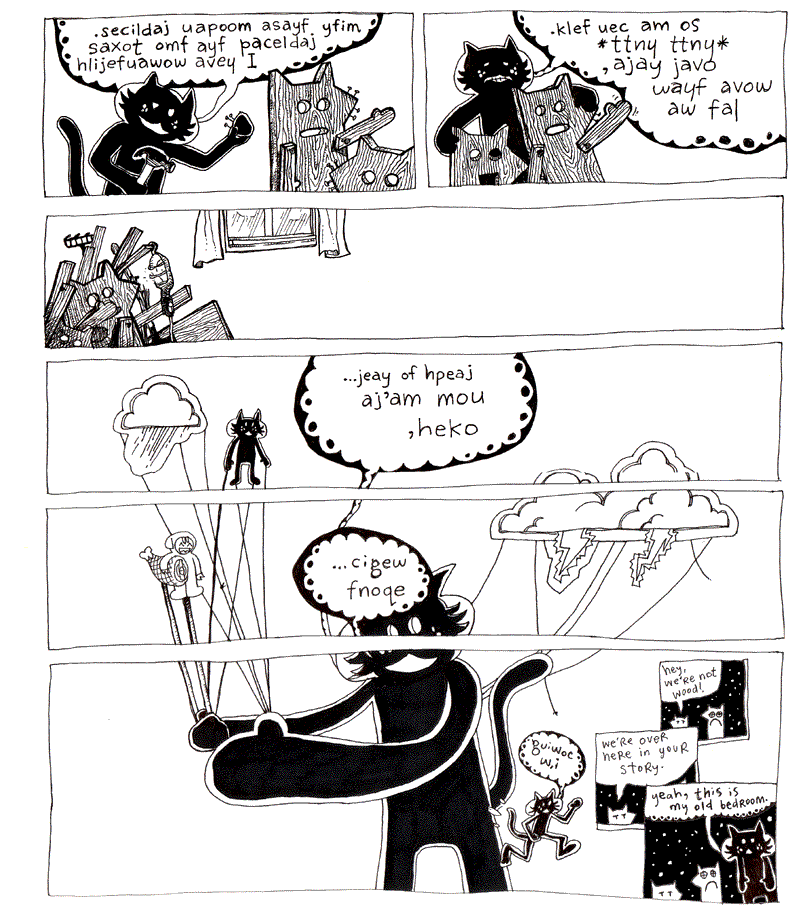 .secildaj uapoom asayf yfim
saxot omf ayf paceldaj
hlijefuawow avey I
.klef uec am os
*ttny ttny*
,ajay javo
wayf avow
aw fal
...jeay of hpeaj
aj'am mou
,heko
...cigew
fnoqe
guiwoc
w,i
hey,
we're not
wood!
we're over
here in your
story.
yeah, this is
my old bedroom.